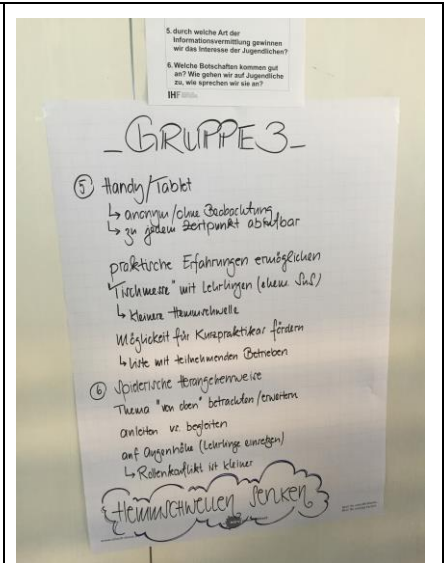 5. durch welche Art der
Informationsvermittlung gewinnen
wir das Interesse der Jugendlichen?
6. Welche Botschaften kommen gut
an? Wie gehen wir auf Jugendliche
zu, wie sprechen wir sie an?
IHF
_GRUPPE 3_
5 Handy/Tablet
↳ anonym/ohne Beobachtung
↳ zu jedem Zeitpunkt abrufbar
praktische Erfahrungen ermöglichen
"Tischmesse" mit Lehrlingen (ehem. SuS)
↳ kleinere Hemmschwelle
Möglichkeit für Kurzpraktikas fördern
↳ Liste mit teilnehmenden Betrieben
6 Spielerische Herangehensweise
Thema "von oben" betrachten/erweitern
anleiten vs. begleiten
auf Augenhöhe (Lehrlinge einsetzen)
↳ Rollenkonflikt ist kleiner
Hemmschwellen senken